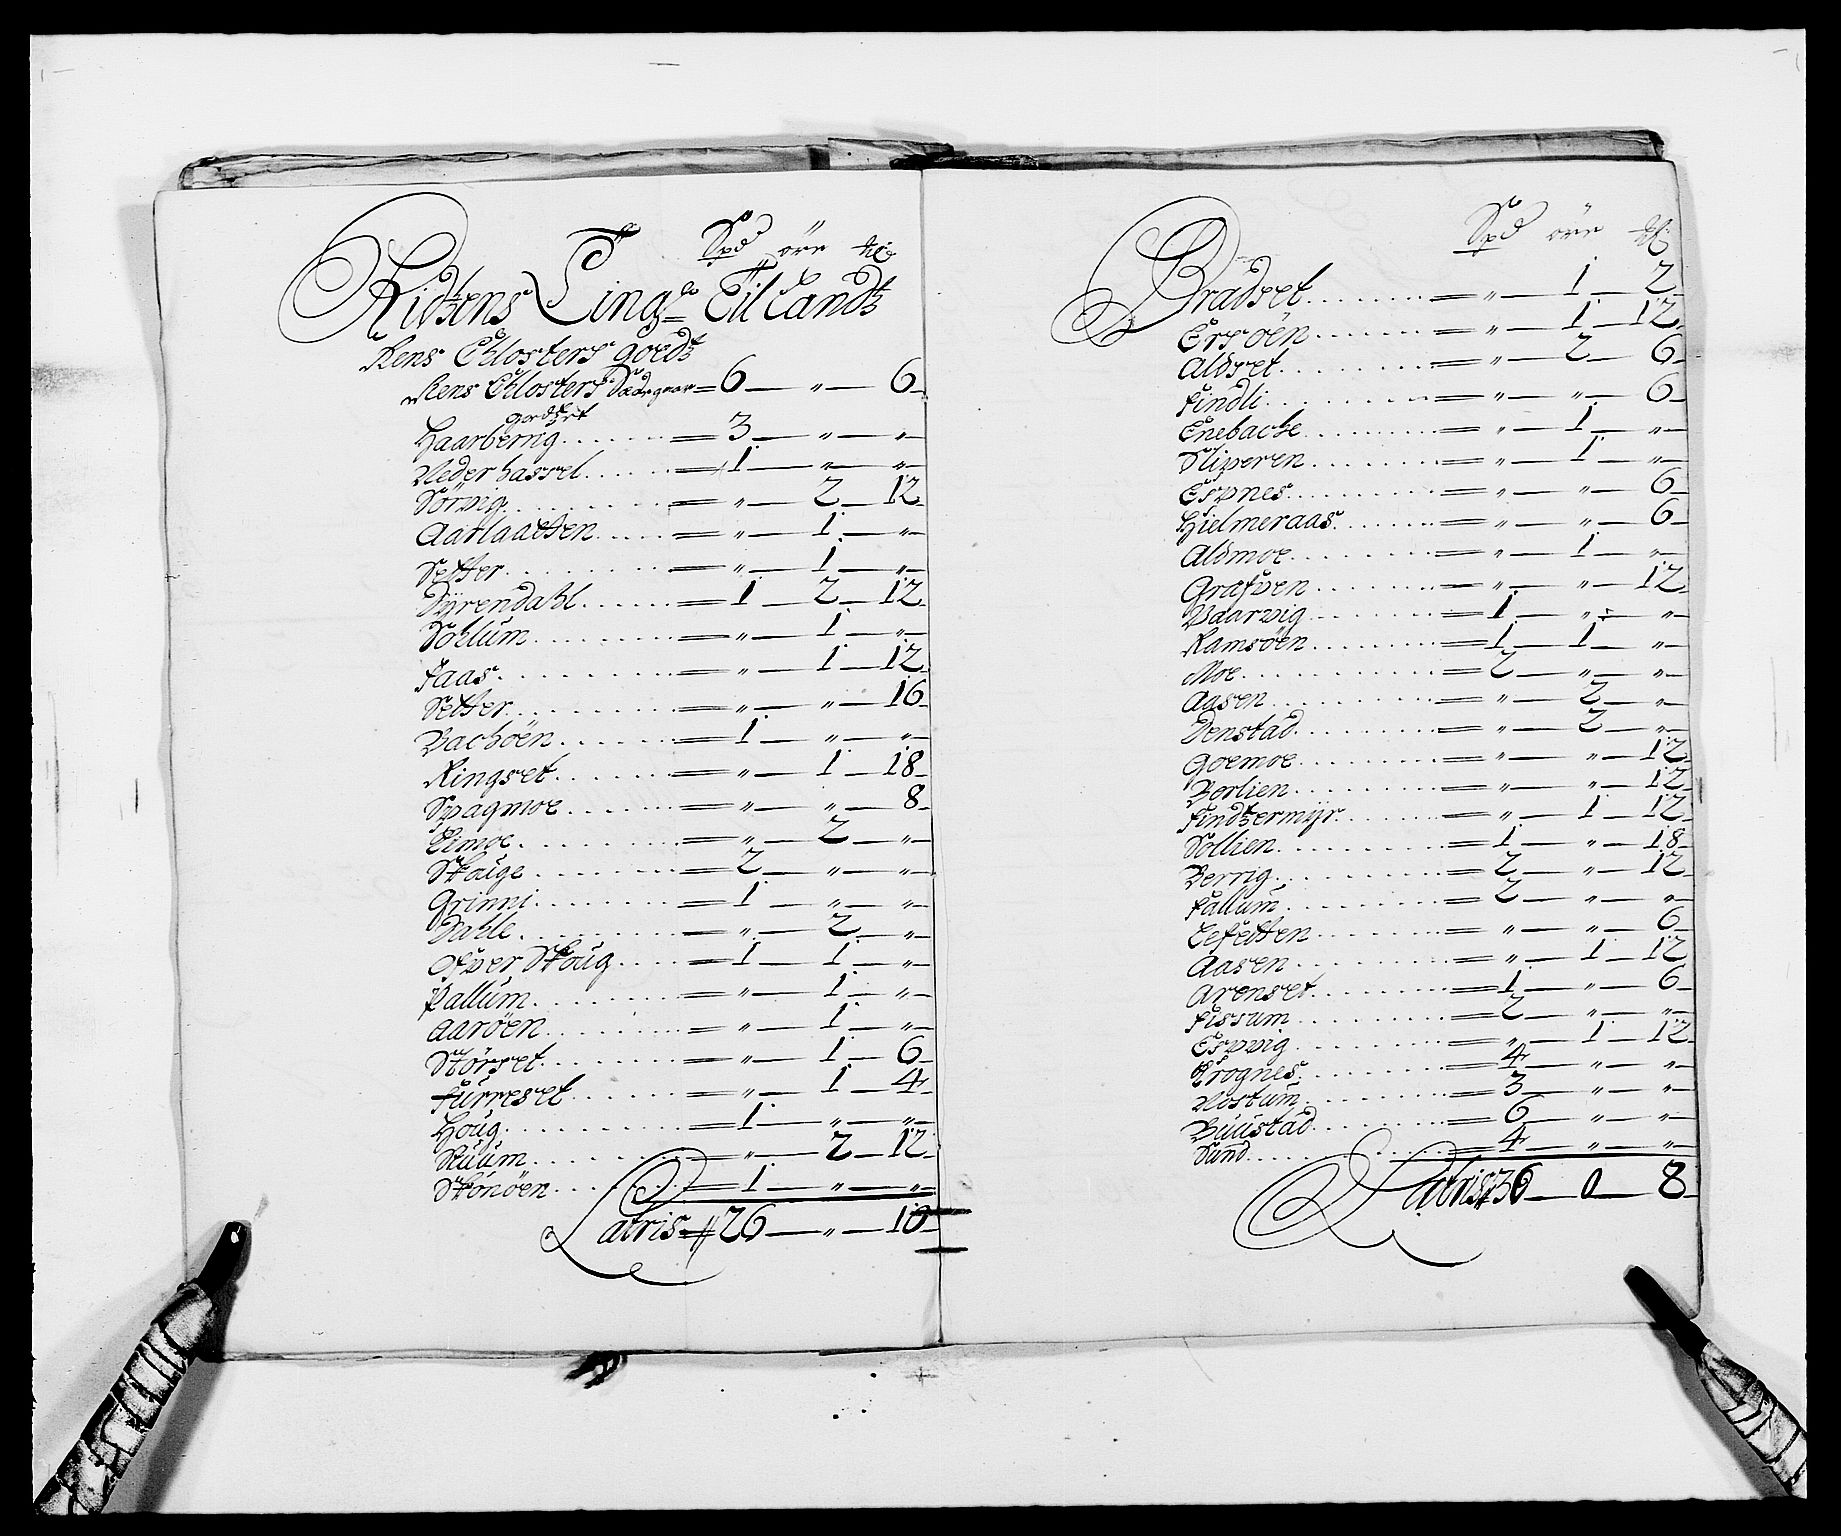 Spd öre
Ridsens Ting Till Landtz
Rens Closters goedtz
Rens Closters = 6 — „ — 6
godtzet
Haarberrig = 3 — „ — „
Neder hassel = 1 — „ — „
Sörvig = „ — 2 — 12
Aarlaatten = „ — 1 — „
Setter = „ — 1 — „
Dÿrendahl = 1 — 2 — 12
Solum = „ — 1 — „
Faas = „ — 1 — 12
Setter = „ — „ — 16
Bachöen = 1 — „ — „
Ringset = „ — 1 — 18
Spagmoe = „ — „ — 8
Eimoe = „ — 2 — „
Skouge = 2 — „ — „
Grinni = 1 — „ — „
Dahle = „ — 2 — „
Ofver Skoug = 1 — 1 — „
Pallum = „ — 1 — „
Aaröen = „ — 1 — „
Störset = „ — 1 — 6
Furreset = „ — 1 — 4
Houg = 1 — „ — „
Ruum = „ — 2 — 12
Skönöen = 1 — „ — „
Latris # 26 — „ — 10
Spd öre
Brådset = „ — 1 — 2
Ersöen = „ — 1 — 12
Aldset = „ — 2 — 6
Findli = „ — „ — 6
Enebache = „ — 1 — „
Slipperen = „ — 1 — „
Espnes = „ — „ — 6
Hielmeraas = „ — „ — 6
Aldmoe = „ — 1 — „
Grafven = „ — „ — 12
Vaarvig = 1 — „ — „
Ramsöen = 1 — 1 — „
Moe = 2 — „ — „
Aasen = „ — 2 — „
Denstad = „ — 2 — „
Goemoe = „ — „ — 12
Berlien = „ — „ — 12
Findtzermÿr = „ — 1 — 12
Sollien = 1 — „ — 18
Berrig = 2 — „ — 12
Fallum = 2 — „ — „
Eefetten = „ — „ — 6
Aasen = „ — 1 — 12
Arenset = 1 — „ — 6
Fissum = 2 — „ — „
Espvig = „ — 1 — 12
Krognes = 4 — „ — „
Rostum = 3 — „ — „
Buustad = 6 — „ — „
Sund = 4 — „ — „
Latris # 36 — 0 — 8